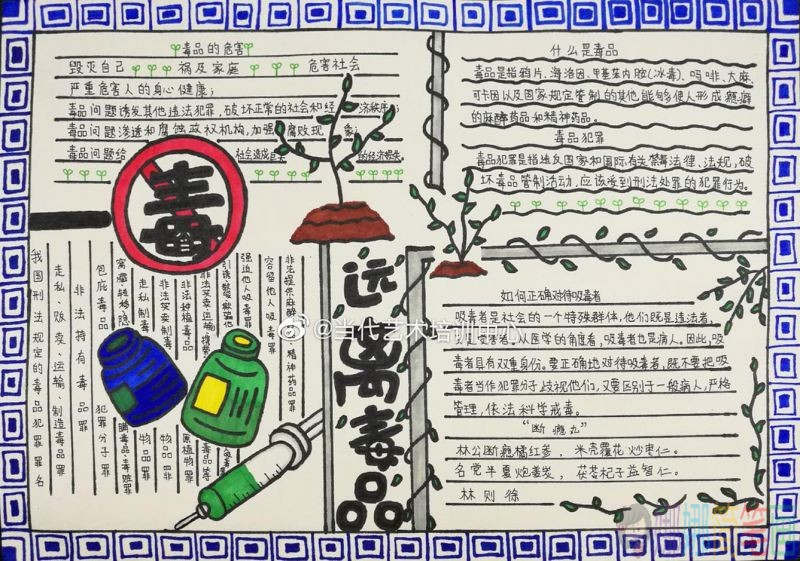 毒品的危害
毁灭自己 祸及家庭 危害社会
严重危害人的身心健康;
毒品问题诱发其他违法犯罪,破坏正常的社会和经济秩序;
毒品问题渗透和腐蚀政权机构,加强腐败现象;
毒品问题给社会造成巨大的经济损失。
毒
什么是毒品
毒品是指鸦片、海洛因、甲基苯丙胺(冰毒)、吗啡、大麻、
可卡因以及国家规定管制的其他能够使人形成瘾癖
的麻醉药品和精神药品。
毒品犯罪
毒品犯罪是指违反国家和国际有关禁毒法律、法规,破
坏毒品管制活动,应该受到刑法处罚的犯罪行为。
远离毒品
我国刑法规定的毒品犯罪罪名
走私、贩卖、运输、制造毒品罪
非法持有毒品罪
包庇毒品 犯罪分子罪
窝藏转移隐瞒毒品毒赃罪
走私制毒物品罪
非法买卖制毒物品罪
非法种植毒品原植物罪
强迫他人吸毒罪
容留他人吸毒罪
非法提供麻醉 精神药品罪
如何正确对待吸毒者
吸毒者是社会的一个特殊群体,他们既是违法者,
受害者,从医学的角度看,吸毒者也是病人。因此,吸
毒者具有双重身份。要正确地对待吸毒者,既不要把吸
毒者当作犯罪分子歧视他们,又要区别于一般病人,严格
管理,依法科学戒毒。
“断瘾丸”
林公断瘾橘红参, 米壳覆花炒枣仁。
名党半夏炮姜炭, 茯苓杞子益智仁。
林则徐
@当代艺术培训中心